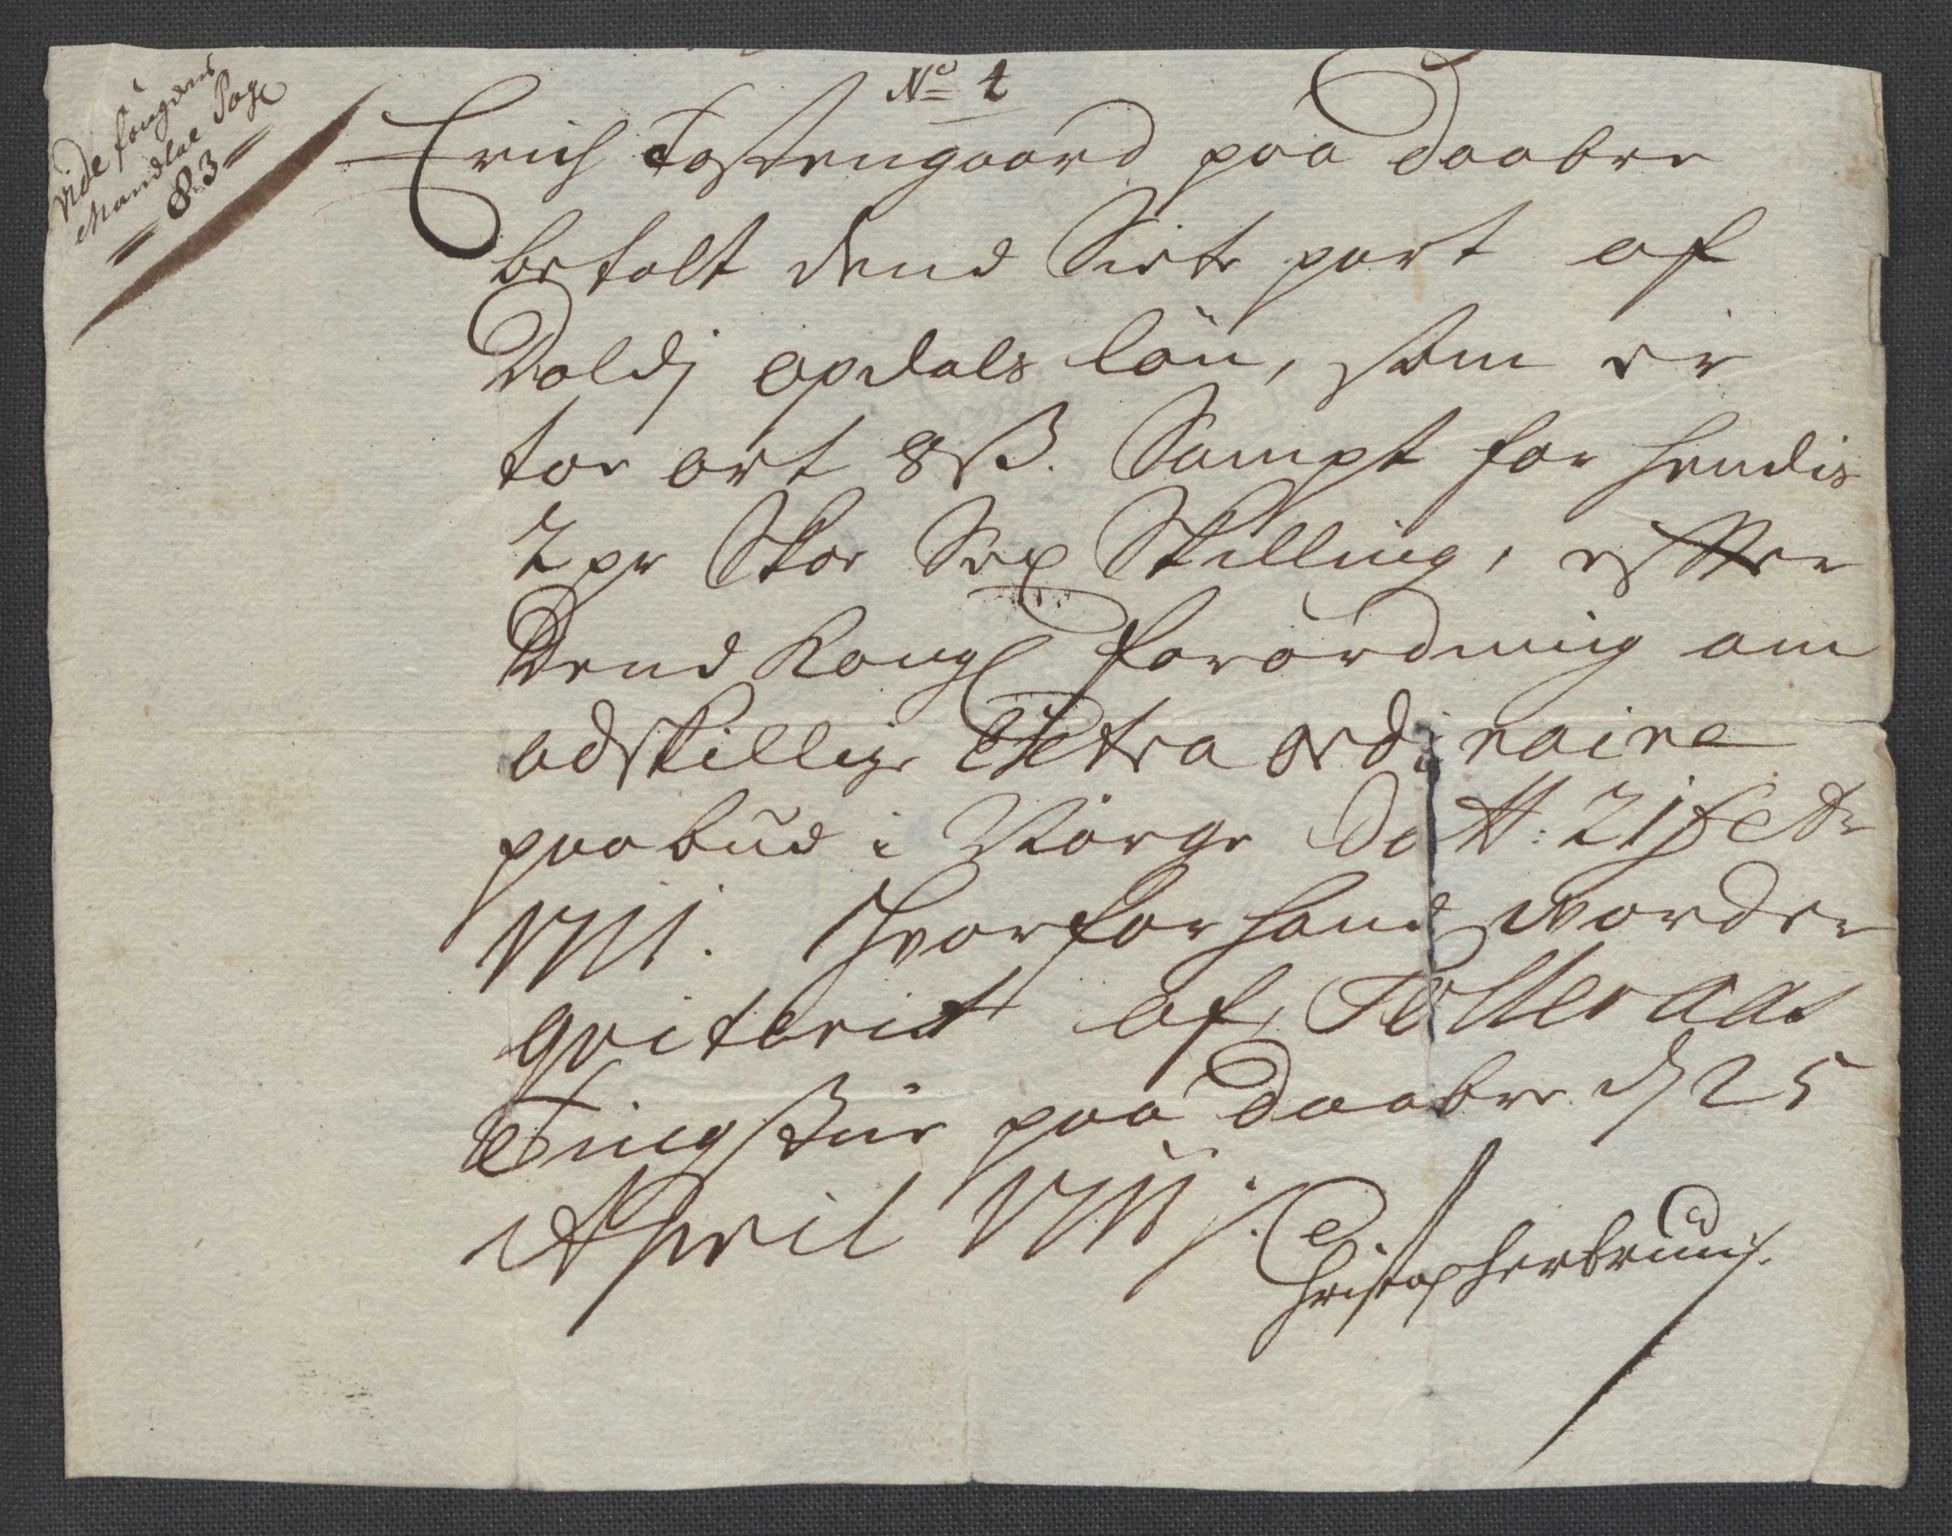 Vide fougdens
Mandtal Pag
83
No 4
Erich Tostengaard paa Daabre
betalt dend Siete part af
Doldj opdals lön, som er
toe ort 8 ß. Sampt for hendis
2 pr Skoe Sex Skilling, efter
Dend Kongl forordning om
adskillige Extra ordinaire
paabud i Norge Datt: 21 feb
1711. Hvorfor hand vorder
qviterit af
Tingstue paa Daabre d 25
April 1711.
Christopherbruun.